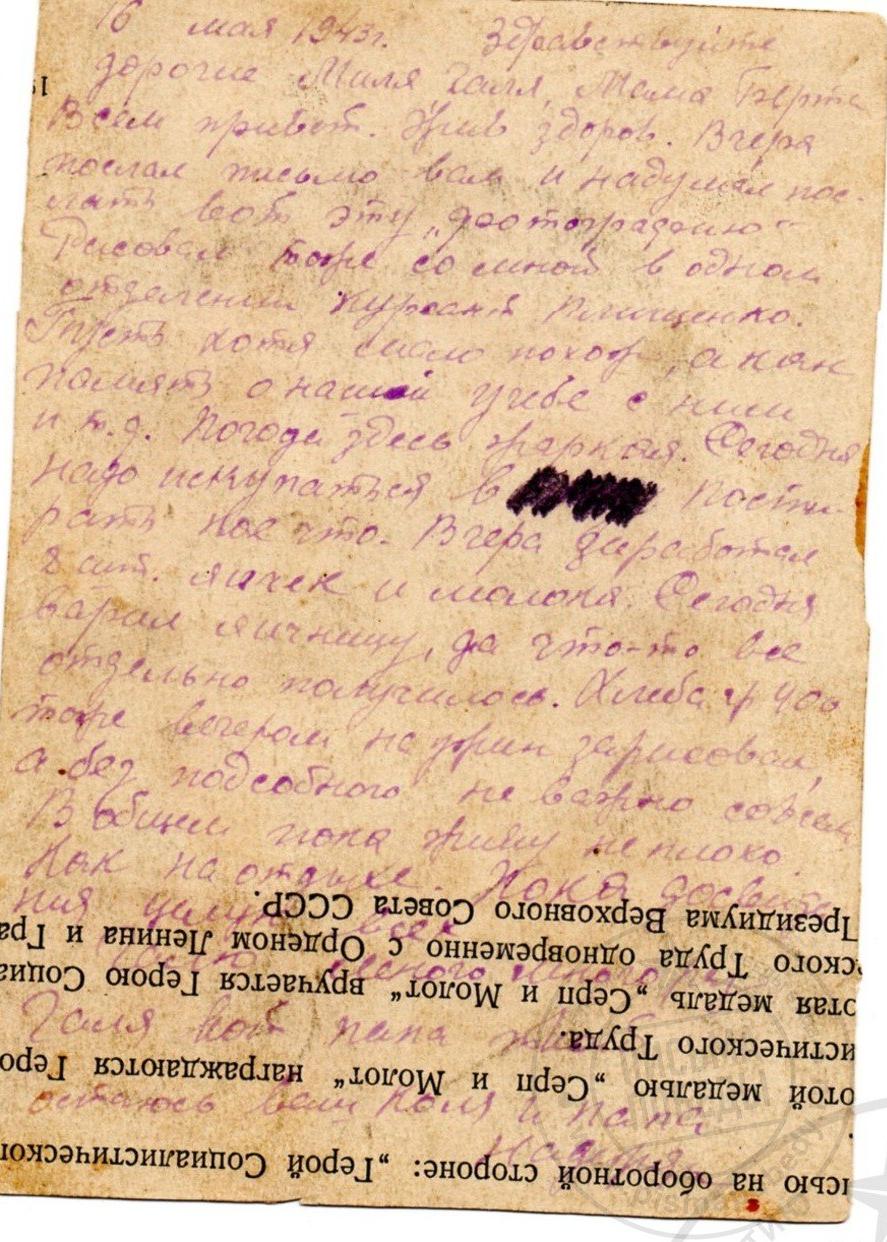 16 мая 1943г. Здравствуйте
дорогие Миля Галя, Мама Берта
Всем привет. Жив здоров. Вчера
послал письмо вам и надумал пос-
лать вот эту „фотографию“
Рисовал тоже со мной в одном
отделении курсант
Пусть хотя мало похож, а как
память о нашей учебе с ним
и т.д. Погода здесь жаркая. Сегодня
надо искупаться в пости-
рать кое что. Вчера заработал
8 шт. яичек и молока. Сегодня
варил яичницу, да что-то все
отдельно получилось. Хлеба гр 400
тоже вечером на ужин зарисовал,
а без подсобного не важно совсем
В общем пока живу не плохо
Как на отдыхе. Пока досвида-
ния целую всех
много
Галя вот папа
остаюсь ваш Коля и папа
Президиума Верховного Совета СССР.
ского Труда одновременно с Орденом Ленина и Гра
отая медаль „Серп и Молот“ вручается Герою Социа
истического Труда.
отой медалью „Серп и Молот“ награждаются Геро
исью на оборотной стороне: „Герой Социалистическог